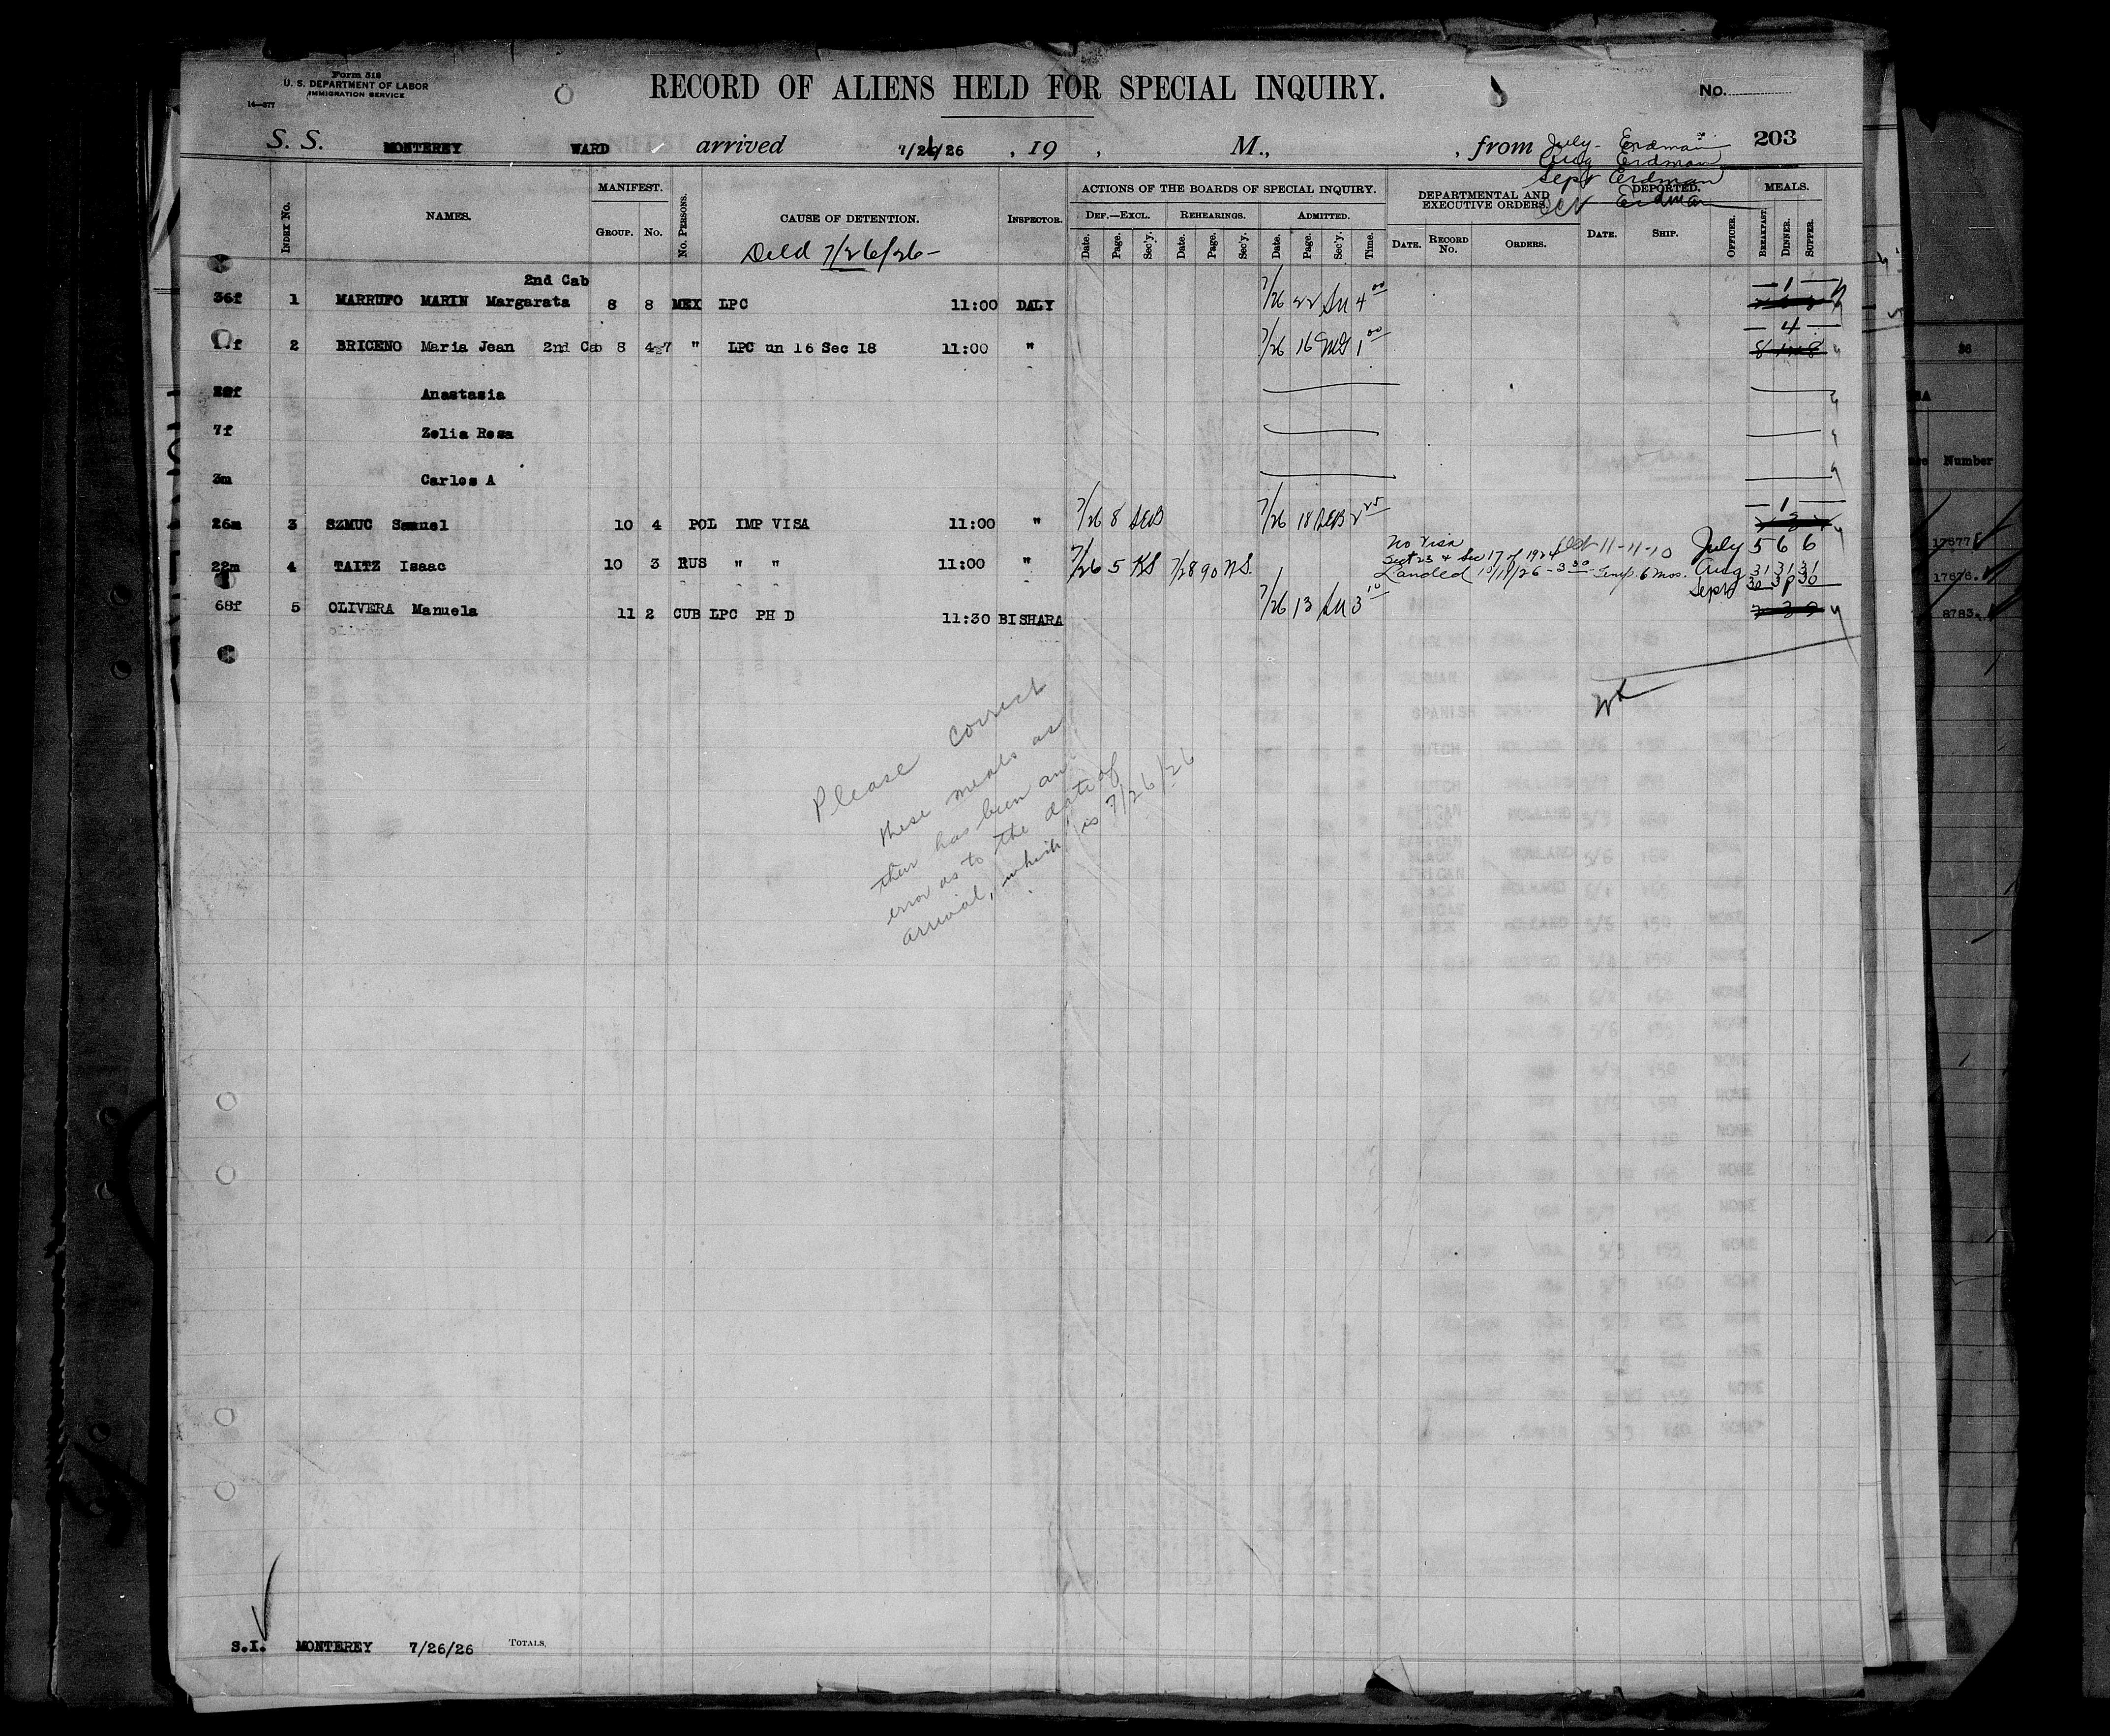 Form 518
U. S. DEPARTMENT OF LABOR
IMMIGRATION SERVICE
14—577
RECORD OF ALIENS HELD FOR SPECIAL INQUIRY.
No.
S. S. MONTEREY WARD arrived 7/26/26 , 19 , M., , from
203
July - Erdman
Aug Erdman
Sept Erdman
Oct Erdman
Index No.
NAMES.
MANIFEST.
GROUP. No.
No. PERSONS.
CAUSE OF DETENTION.
Deld 7/26/26 -
INSPECTOR.
ACTIONS OF THE BOARDS OF SPECIAL INQUIRY.
DEF.—EXCL. REHEARINGS. ADMITTED.
Date. Page. Sec'y. Date. Page. Sec'y. Date. Page. Sec'y. Time.
DEPARTMENTAL AND EXECUTIVE ORDERS.
DATE. RECORD No. ORDERS.
DEPORTED.
DATE. SHIP.
OFFICER.
MEALS.
BREAKFAST. DINNER. SUPPER.
2nd Cab
36f 1 MARRUFO MARIN Margarata 8 8 MEX LPC 11:00 DALY 7/26 22 4 00 — 1 —
f 2 BRICENO Maria Jean 2nd Cab 8 4-7 " LPC un 16 Sec 18 11:00 " 7/26 16 1 00 — 4 —
28f Anastasia
7f Zelia Rosa
3m Carlos A
26m 3 SZMUC Samuel 10 4 POL IMP VISA 11:00 " 7/26 8 7/26 18 2 25 — 1 —
22m 4 TAITZ Isaac 10 3 RUS " " 11:00 " 7/26 5 KS 7/28 90 NS
No Visa
Sect 23 & Sec 17 of 1924 Oct 11-11-10 July 5 6 6
Landed 10/11/26 - 3 30 - Temp. 6 mos. Aug 31 31 31
Sept 30 30 30
68f 5 OLIVERA Manuela 11 2 CUB LPC PH D 11:30 BISHARA 7/26 13 3 10
Please correct
these meals as
their has been an
error as to the date of
arrival, which is 7/26/26
S.I. MONTEREY 7/26/26 TOTALS,
26
Number
17577
17678.
8783.